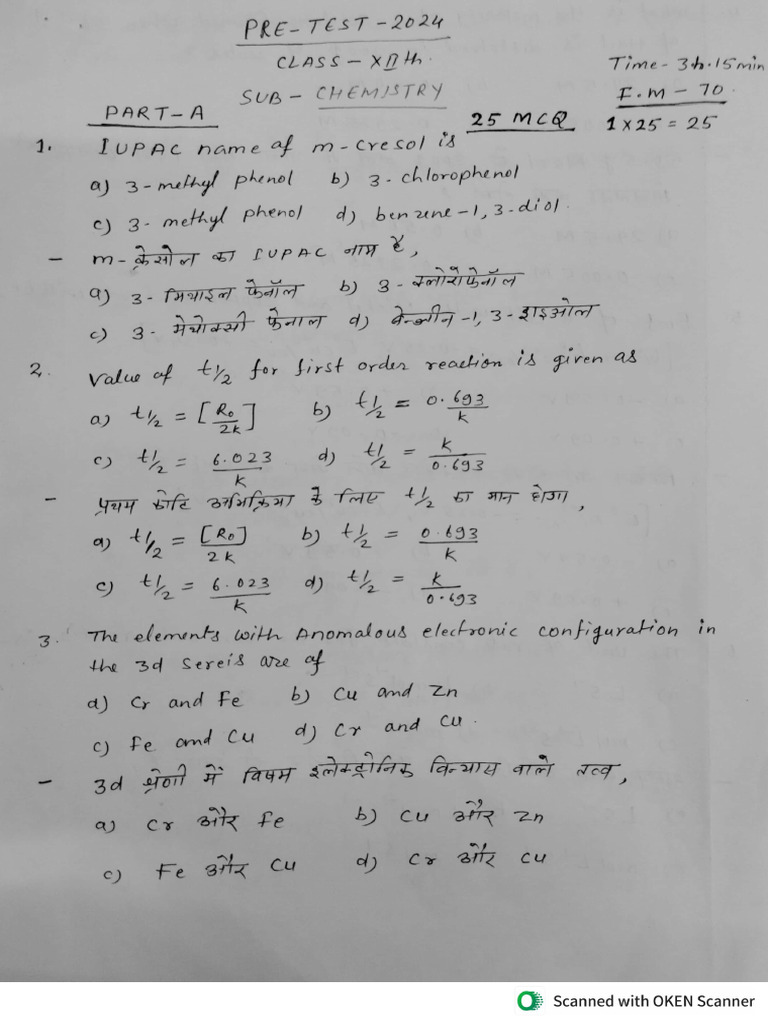 PRE-TEST-2024
CLASS-XIIth.
Time-3h.15min
SUB-CHEMISTRY
F.M-70.
PART-A
25 MCQ 1×25=25
1. IUPAC name of m-cresol is
a) 3-methyl phenol b) 3-chlorophenol
c) 3-methyl phenol d) benzene-1,3-diol.
- m-क्रेसोल का IUPAC नाम है,
a) 3-मिथाइल फेनॉल b) 3-क्लोरोफेनॉल
c) 3-मेथोक्सी फेनाल d) बेन्जीन-1,3-डाइओल
2. Value of t1/2 for first order reaction is given as
a) t1/2 = [R0/2k] b) t1/2 = 0.693/k
c) t1/2 = 6.023/k d) t1/2 = k/0.693
- प्रथम कोटि अभिक्रिया के लिए t1/2 का मान होगा,
a) t1/2 = [R0]/2k b) t1/2 = 0.693/k
c) t1/2 = 6.023/k d) t1/2 = k/0.693
3. The elements with Anomalous electronic configuration in
the 3d Sereis are of
a) Cr and Fe b) Cu and Zn
c) Fe and Cu d) Cr and Cu.
- 3d श्रेणी में विषम इलेक्ट्रोनिक विन्यास वाले तत्व,
a) Cr और Fe b) Cu और Zn
c) Fe और Cu d) Cr और Cu
Scanned with OKEN Scanner